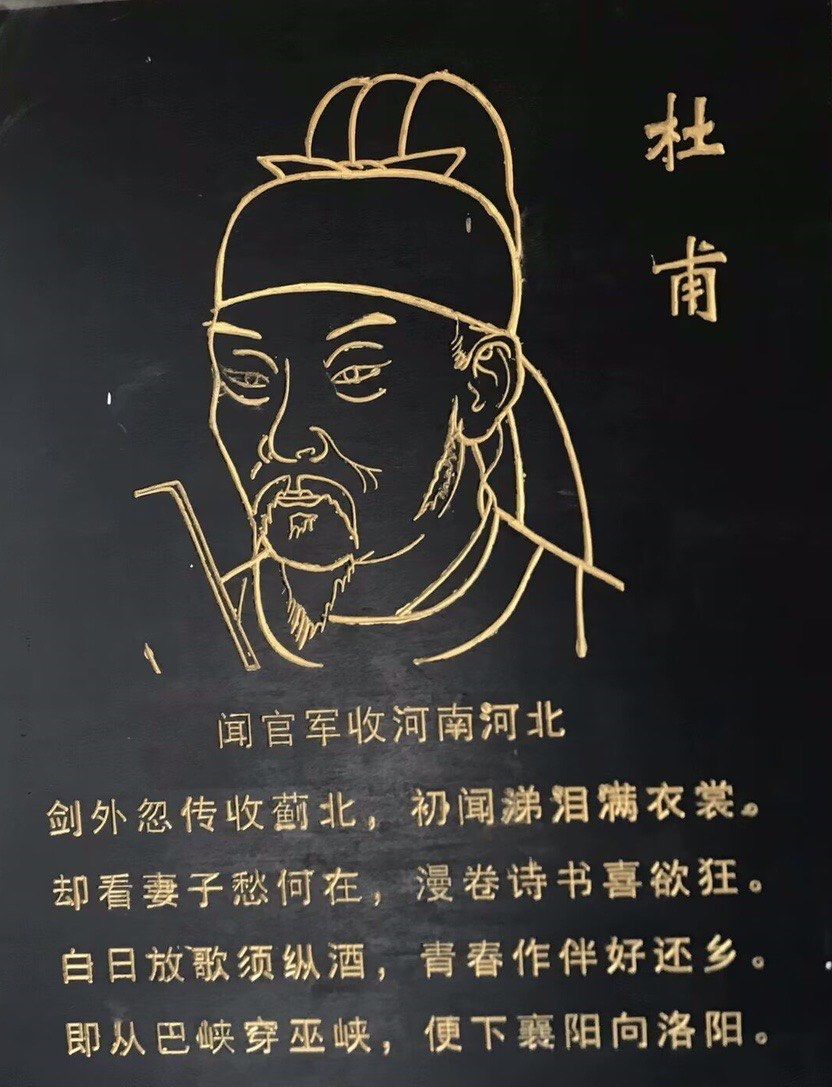 杜甫
闻官军收河南河北
剑外忽传收蓟北，初闻涕泪满衣裳。
却看妻子愁何在，漫卷诗书喜欲狂。
白日放歌须纵酒，青春作伴好还乡。
即从巴峡穿巫峡，便下襄阳向洛阳。